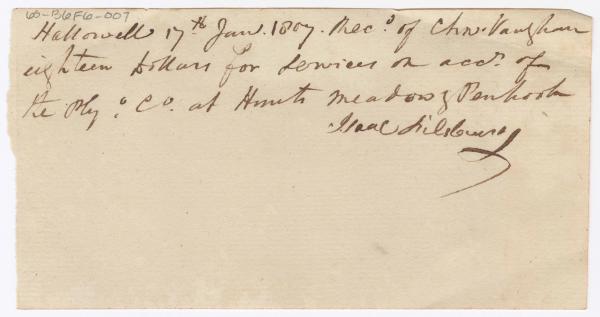 60-B6F6-007
Hallowell 17th Jan. 1807. Rec.d of Chas. Vaughan
eighteen Dollars for services on acc.t of
the Ply.o Co. at Hunts meadow & Penhook
Isaac Pilsbury